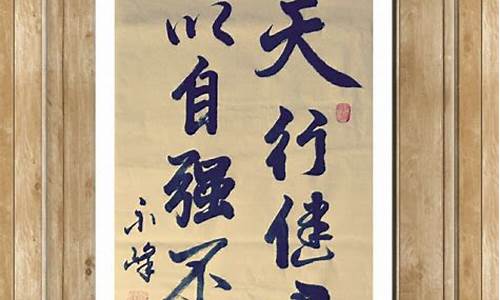 天行健
以自强不
永峰